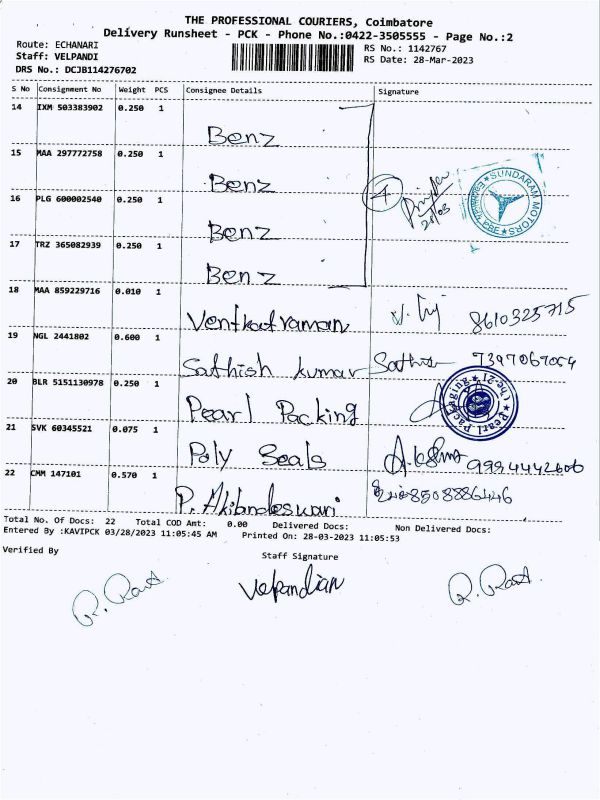 THE PROFESSIONAL COURIERS, Coimbatore
Delivery Runsheet - PCK - Phone No.:0422-3505555 - Page No.:2
Route: ECHANARI RS No.: 1142767
Staff: VELPANDI RS Date: 28-Mar-2023
DRS No.: DCJB114276702
S No Consignment No Weight PCS Consignee Details Signature
14 IXM 503383902 0.250 1
Benz
15 MAA 297772758 0.250 1
Benz
16 PLG 600002540 0.250 1
Benz
17 TRZ 365082939 0.250 1
Benz
4
SUNDARAM MOTORS
18 MAA 859229716 0.010 1
Ventkatraman 8610325715
19 NGL 2441802 0.600 1
Sathish kumar Sathis 7397067054
20 BLR 5151130978 0.250 1
Pearl Packing
Pearl Packaging
21 SVK 60345521 0.075 1
Poly Seals 9994442606
22 CMM 147101 0.570 1
P. Akilandeswari 8508886446
Total No. Of Docs: 22 Total COD Amt: 0.00 Delivered Docs: Non Delivered Docs:
Entered By :KAVIPCK 03/28/2023 11:05:45 AM Printed On: 28-03-2023 11:05:53
Verified By Staff Signature
Velpandian